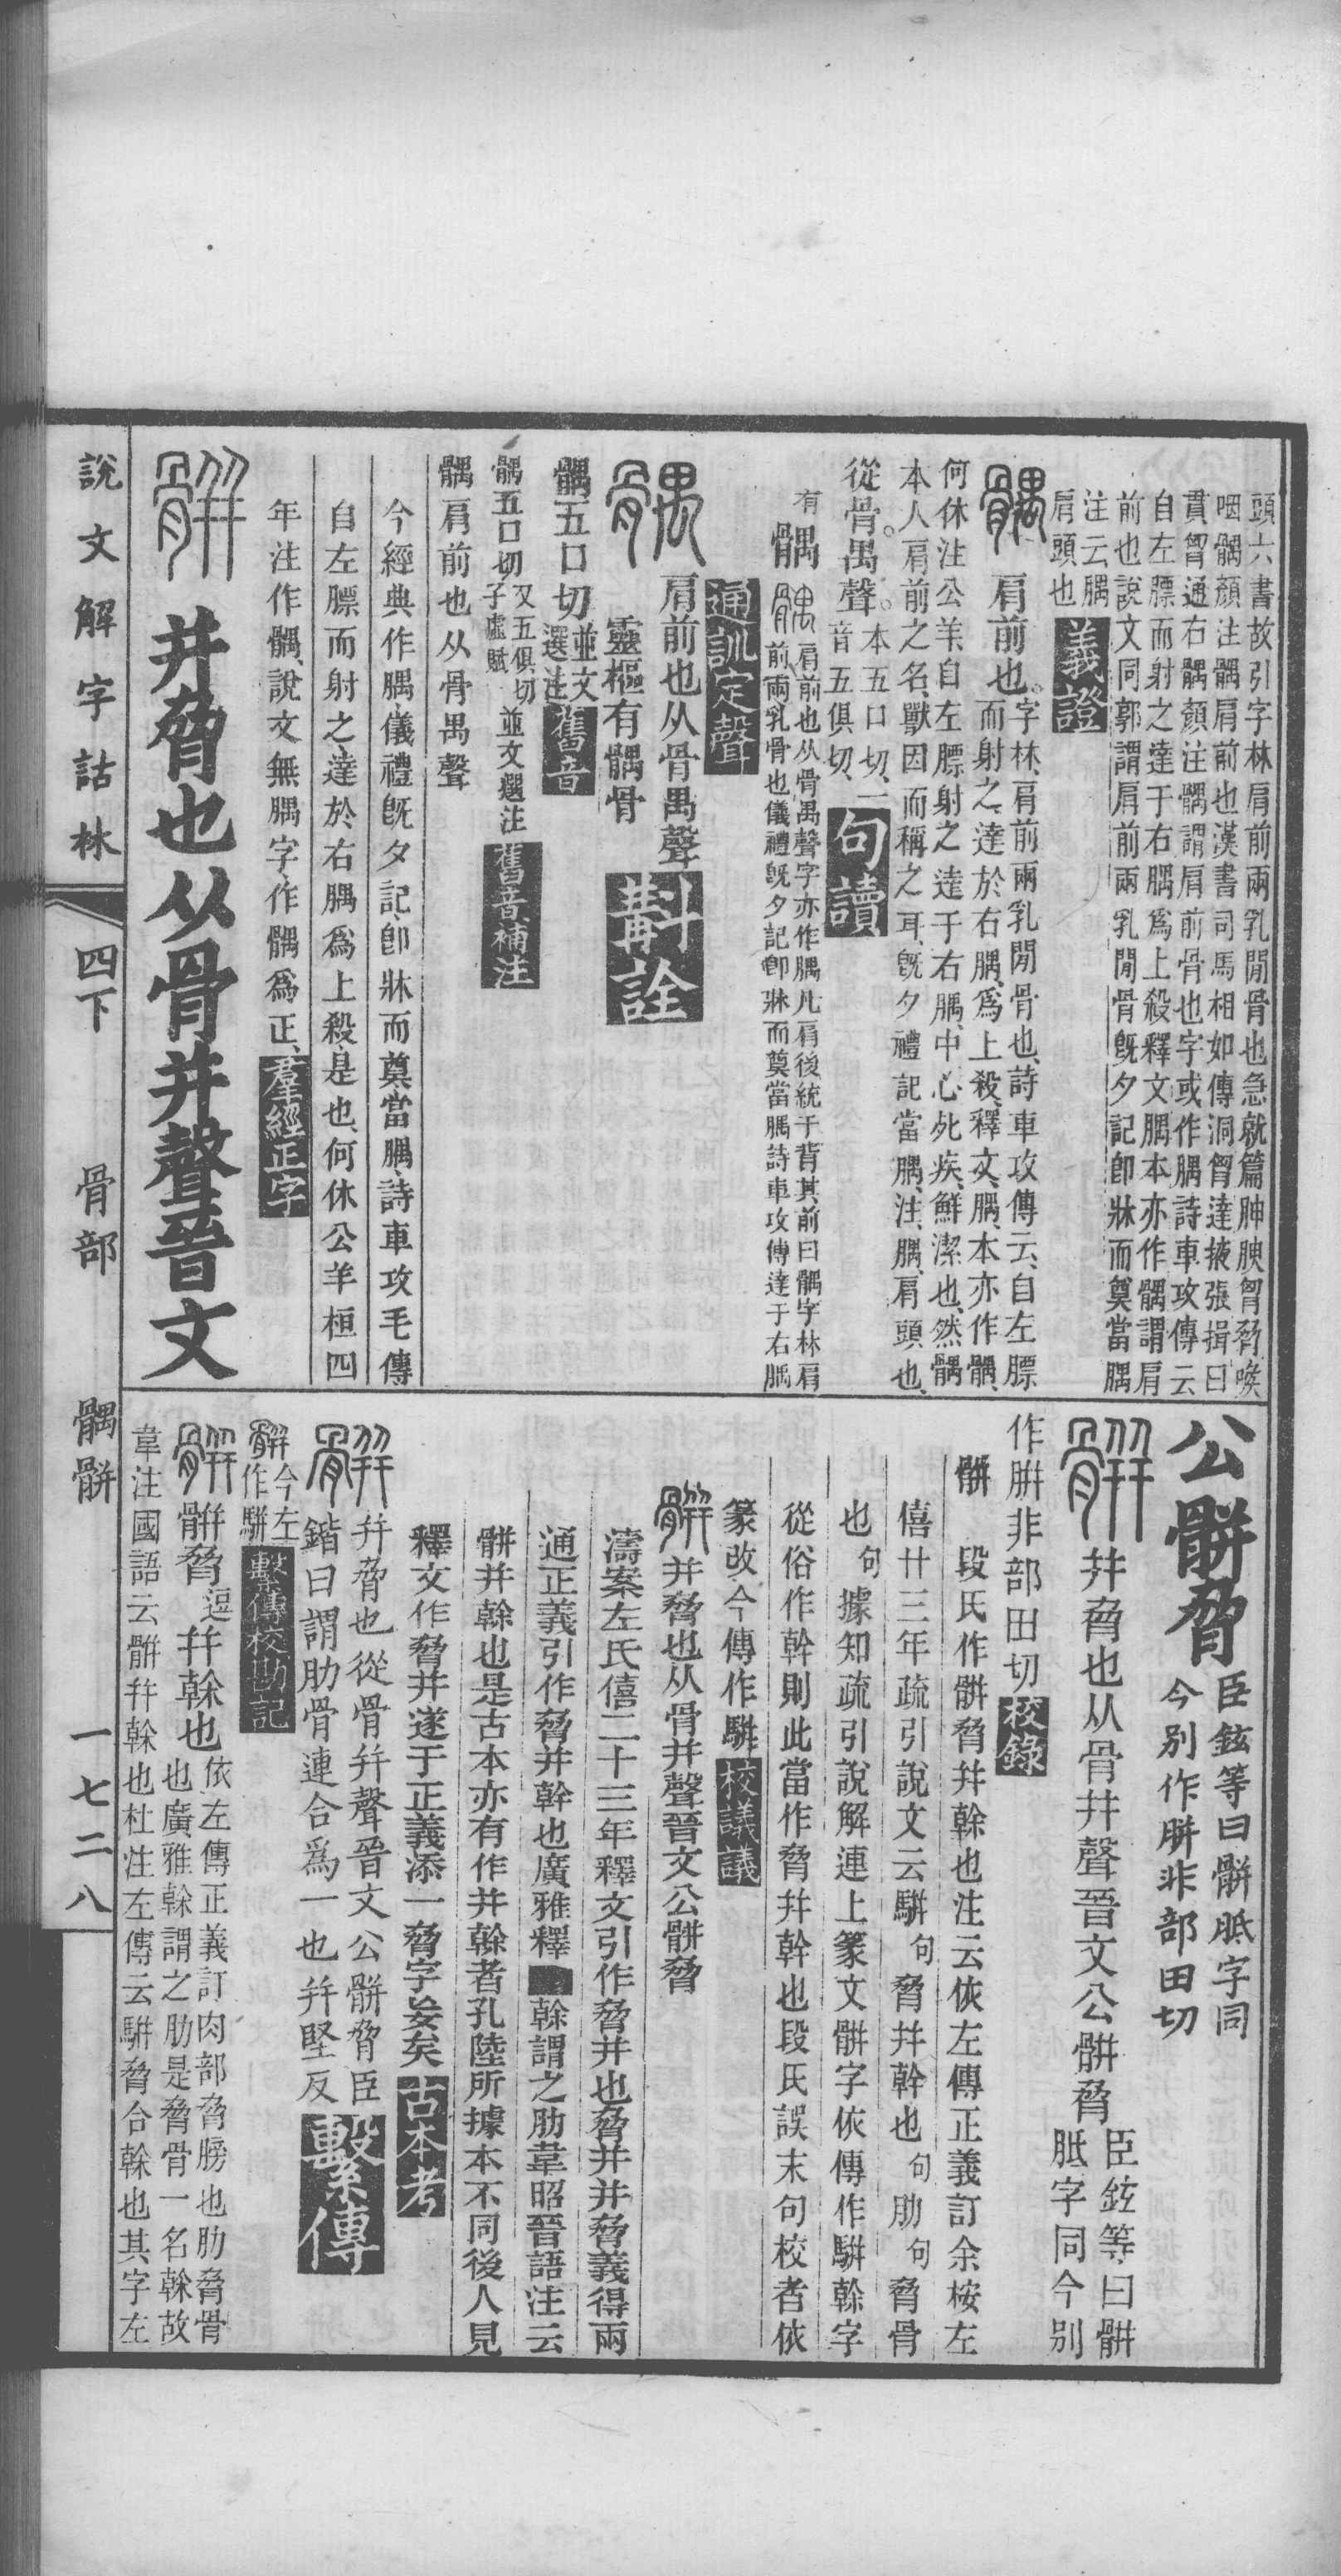 頭六書故引字林肩前兩乳閒骨也急就篇胂腴胷脅喉
咽髃顏注髃肩前也漢書司馬相如傳洞胷達掖張揖曰
貫胷通右髃顏注髃謂肩前骨也字或作腢詩車攻傳云
自左膘而射之達于右腢爲上殺釋文腢本亦作髃謂肩
前也說文同郭謂肩前兩乳閒骨旣夕記卽牀而奠當腢
注云腢
肩頭也
義證
肩前也。
字林、肩前兩乳閒骨也、詩車攻傳云、自左膘
而射之、達於右腢、爲上殺、釋文、腢、本亦作髃、
何休注公羊、自左膘射之達于右腢、中心死疾、鮮潔也、然髃
本人肩前之名、獸因而稱之耳、旣夕禮記當腢、注、腢、肩頭也、
從骨。禺聲。
本五口切、一
音五俱切、
句讀
有
髃
肩前也从骨禺聲字亦作腢凡肩後統于背其前曰髃字林肩
前兩乳骨也儀禮旣夕記卽牀而奠當腢詩車攻傳達于右腢
通訓定聲
肩前也从骨禺聲
靈樞有髃骨
斠詮
髃五口切
並文
選注
舊音
髃五口切
又五俱切
子虛賦
並文選注
舊音補注
髃肩前也从骨禺聲
今經典作腢、儀禮旣夕記、卽牀而奠、當腢、詩車攻毛傳
自左膘而射之、達於右腢爲上殺、是也、何休公羊桓四
年注作髃、說文無腢字、作髃爲正、
羣經正字
幷脅也从骨幷聲晉文
公骿脅
臣鉉等曰骿胝字同
今別作胼非部田切
幷脅也从骨幷聲晉文公骿脅
臣鉉等曰骿
胝字同今別
作胼非部田切
校錄
骿
段氏作骿脅幷榦也注云依左傳正義訂余桉左
僖廿三年疏引說文云騈句脅幷幹也句肋句脅骨
也句據知疏引說解連上篆文骿字依傳作騈榦字
從俗作幹則此當作脅幷幹也段氏誤末句校者依
篆改今傳作騈
校議議
幷脅也从骨幷聲晉文公骿脅
濤案左氏僖二十三年釋文引作脅幷也脅幷幷脅義得兩
通正義引作脅幷幹也廣雅釋榦謂之肋韋昭晉語注云
骿幷榦也是古本亦有作幷榦者孔陸所據本不同後人見
釋文作脅幷遂于正義添一脅字妄矣
古本考
幷脅也從骨幷聲晉文公骿脅臣
鍇曰謂肋骨連合爲一也幷堅反
繫傳
骿
今左
作騈
繫傳校勘記
骿脅逗幷榦也
依左傳正義訂肉部脅膀也肋脅骨
也廣雅榦謂之肋是脅骨一名榦故
韋注國語云骿幷榦也杜注左傳云騈脅合榦也其字左
說文解字詁林
四下
骨部
髃骿
一七二八